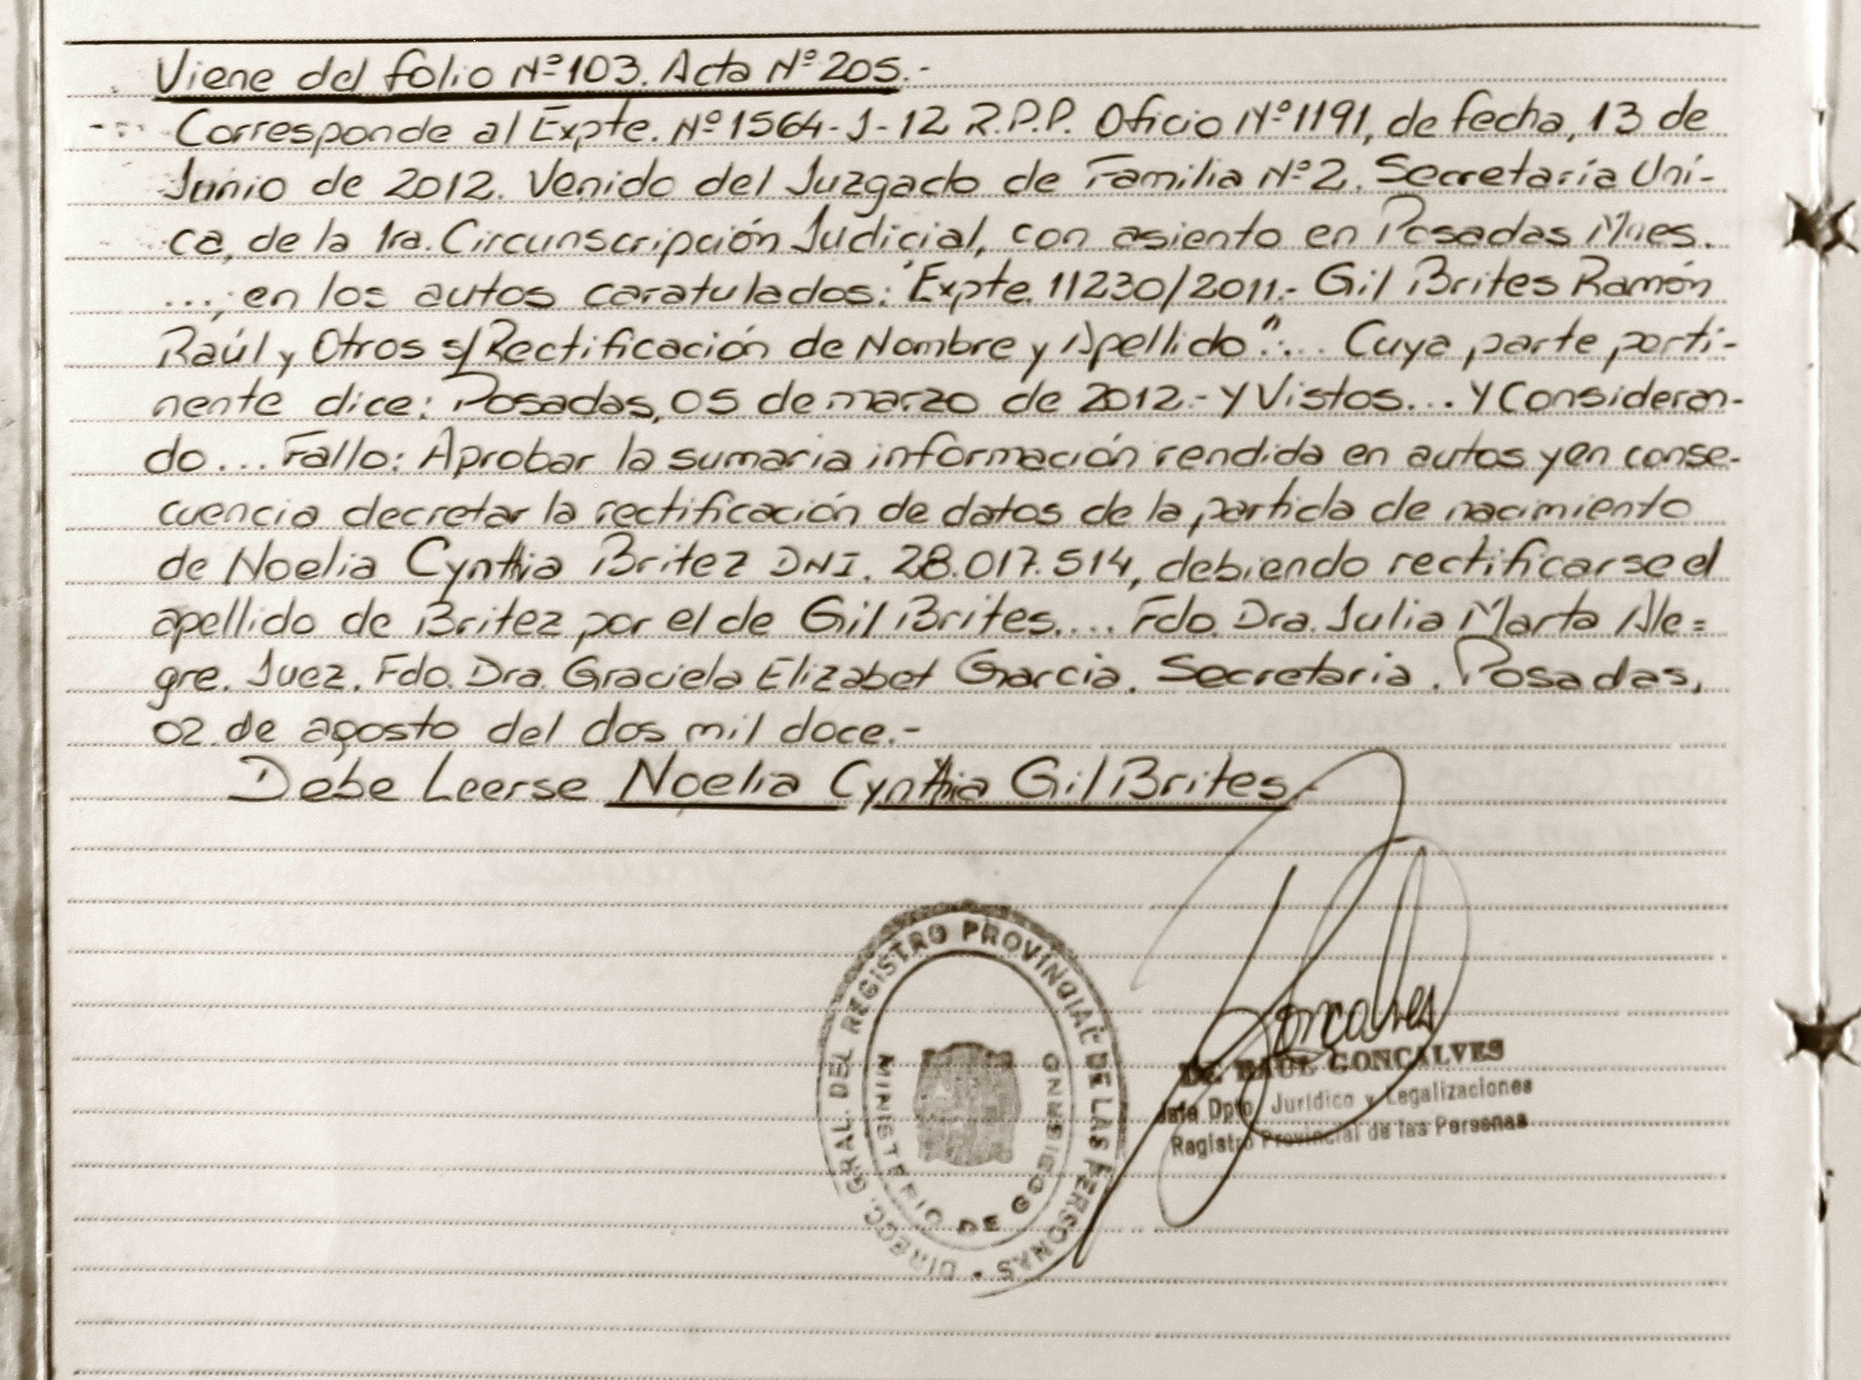 Viene del folio Nº 103. Acta Nº 205.-
Corresponde al Expte. Nº 1564-J-12 R.P.P. Oficio Nº 1191, de fecha, 13 de
Junio de 2012. Venido del Juzgado de Familia Nº 2. Secretaría Úni-
ca, de la 1ra. Circunscripción Judicial, con asiento en Posadas Mnes.
...; en los autos caratulados: "Expte. 11230/2011.- Gil Brites Ramón
Raúl y Otros s/ Rectificación de Nombre y Apellido"... Cuya parte perti-
nente dice: Posadas, 05 de marzo de 2012.- Y Vistos... Y Consideran-
do... Fallo: Aprobar la sumaria información rendida en autos y en conse-
cuencia decretar la rectificación de datos de la partida de nacimiento
de Noelia Cynthia Britez DNI. 28.017.514, debiendo rectificarse el
apellido de Britez por el de Gil Brites.... Fdo. Dra. Julia Marta Ale=
gre. Juez. Fdo. Dra. Graciela Elizabet Garcia. Secretaria. Posadas,
02 de agosto del dos mil doce.-
Debe Leerse Noelia Cynthia Gil Brites.-
DIRECC. GRAL. DEL REGISTRO PROVINCIAL DE LAS PERSONAS
MINISTERIO DE GOBIERNO
Goncalves
RAUL GONCALVES
Jefe Dpto. Jurídico y Legalizaciones
Registro Provincial de las Personas